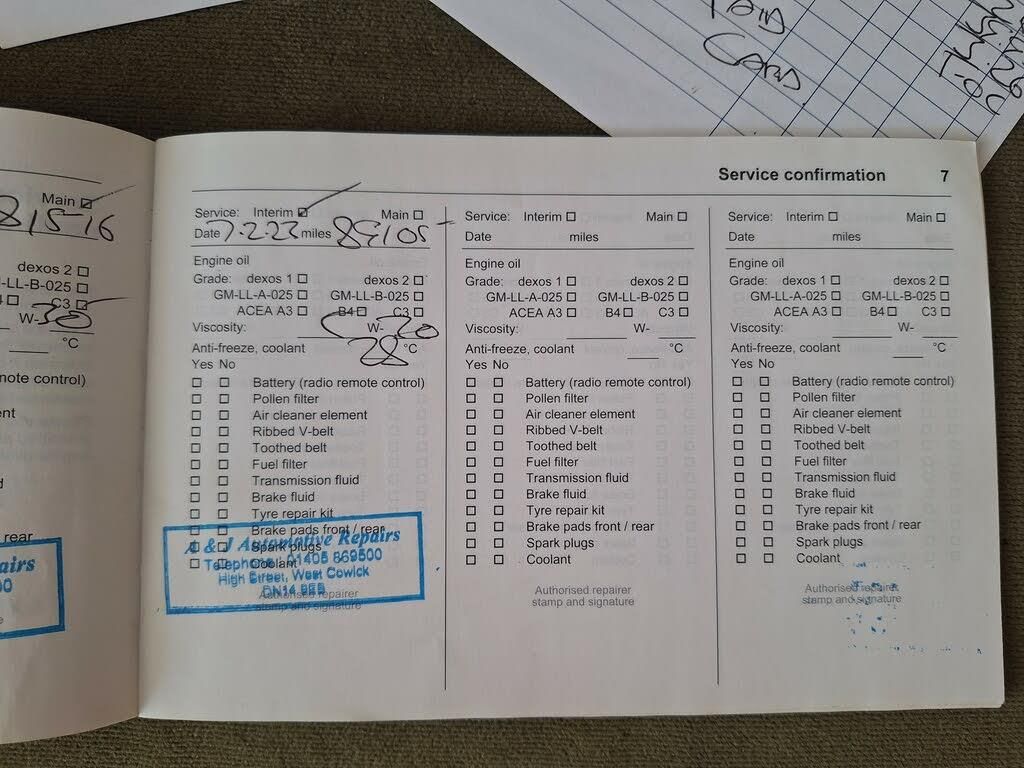 PAID
CARD
Service confirmation 7
Main
8/5-16
dexos 2
-LL-B-025
C3
W-30
°C
note control)
rear
airs
Service: Interim Main
Date 7.2.23 miles
Engine oil
Grade: dexos 1 dexos 2
GM-LL-A-025 GM-LL-B-025
ACEA A3 B4 C3
Viscosity: W-30
Anti-freeze, coolant 38 °C
Yes No
Battery (radio remote control)
Pollen filter
Air cleaner element
Ribbed V-belt
Toothed belt
Fuel filter
Transmission fluid
Brake fluid
Tyre repair kit
Brake pads front / rear
Spark plugs
Coolant
A & J Automotive Repairs
Telephone: 01405 869500
High Street, West Cowick
DN14 9EB
Authorised repairer
stamp and signature
Service: Interim Main
Date miles
Engine oil
Grade: dexos 1 dexos 2
GM-LL-A-025 GM-LL-B-025
ACEA A3 B4 C3
Viscosity: W-
Anti-freeze, coolant °C
Yes No
Battery (radio remote control)
Pollen filter
Air cleaner element
Ribbed V-belt
Toothed belt
Fuel filter
Transmission fluid
Brake fluid
Tyre repair kit
Brake pads front / rear
Spark plugs
Coolant
Authorised repairer
stamp and signature
Service: Interim Main
Date miles
Engine oil
Grade: dexos 1 dexos 2
GM-LL-A-025 GM-LL-B-025
ACEA A3 B4 C3
Viscosity: W-
Anti-freeze, coolant °C
Yes No
Battery (radio remote control)
Pollen filter
Air cleaner element
Ribbed V-belt
Toothed belt
Fuel filter
Transmission fluid
Brake fluid
Tyre repair kit
Brake pads front / rear
Spark plugs
Coolant
Authorised repairer
stamp and signature